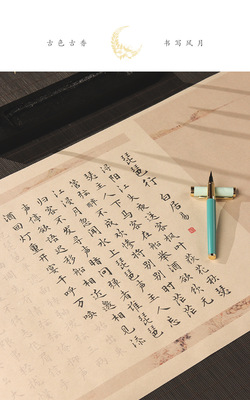 古色古香
书写风月
琵琶行 白居易
浔阳江头夜送客枫叶荻花秋瑟
瑟主人下马客在船举酒欲饮无
管弦醉不成欢惨将别别时茫茫
江浸月忽闻水上琵琶声主人忘
归客不发寻声暗问弹者谁琵琶
声停欲语迟移船相近邀相见添
酒回灯重开宴千呼万唤